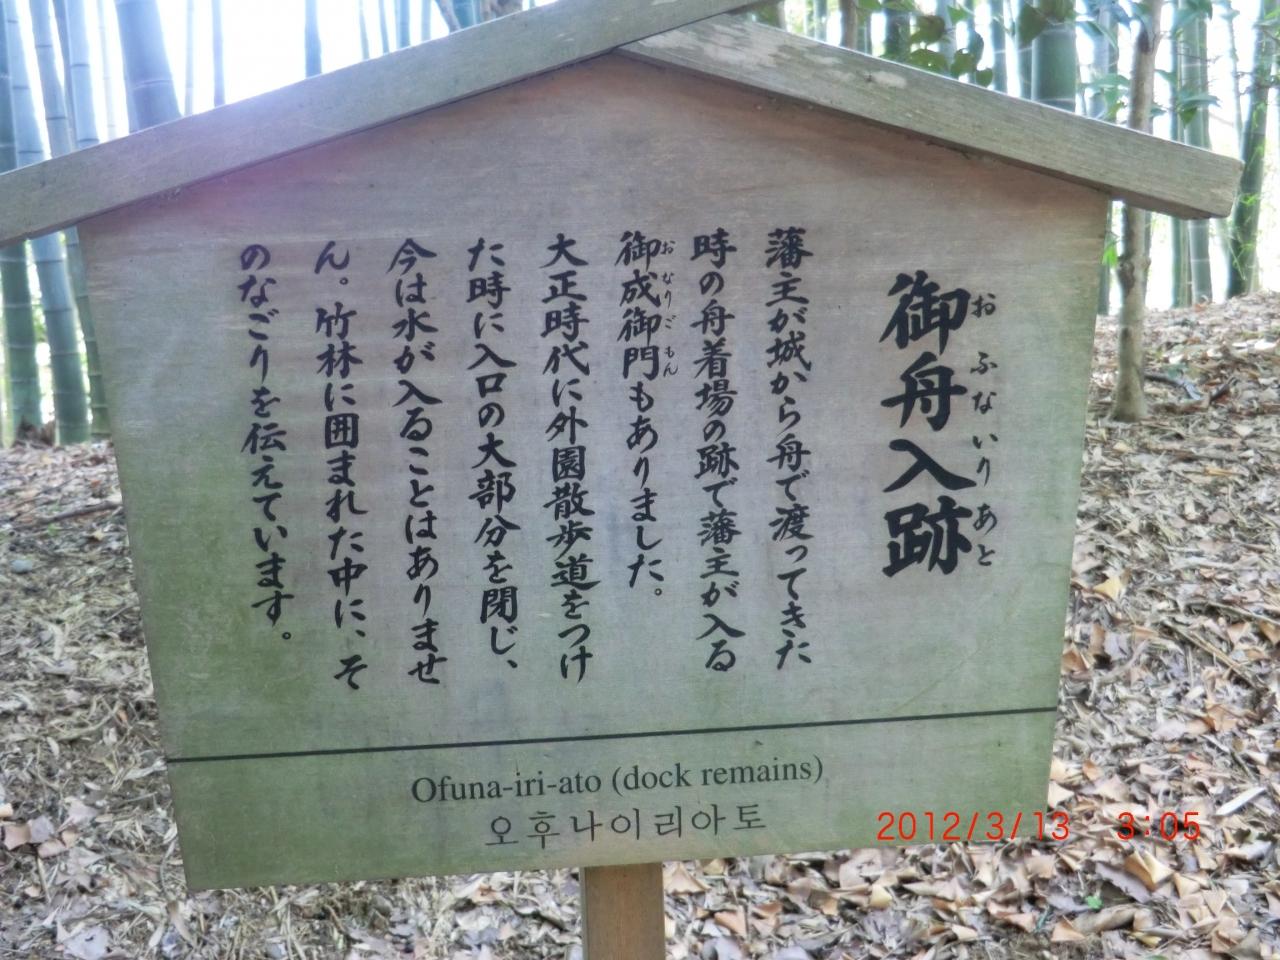 御舟入跡
お ふないりあと
藩主が城から舟で渡ってきた
時の舟着場の跡で藩主が入る
御成御門もありました。
おなりごもん
大正時代に外園散歩道をつけ
た時に入口の大部分を閉じ、
今は水が入ることはありませ
ん。竹林に囲まれた中に、そ
のなごりを伝えています。
Ofuna-iri-ato (dock remains)
오후나이리아토
2012/3/13 3:05